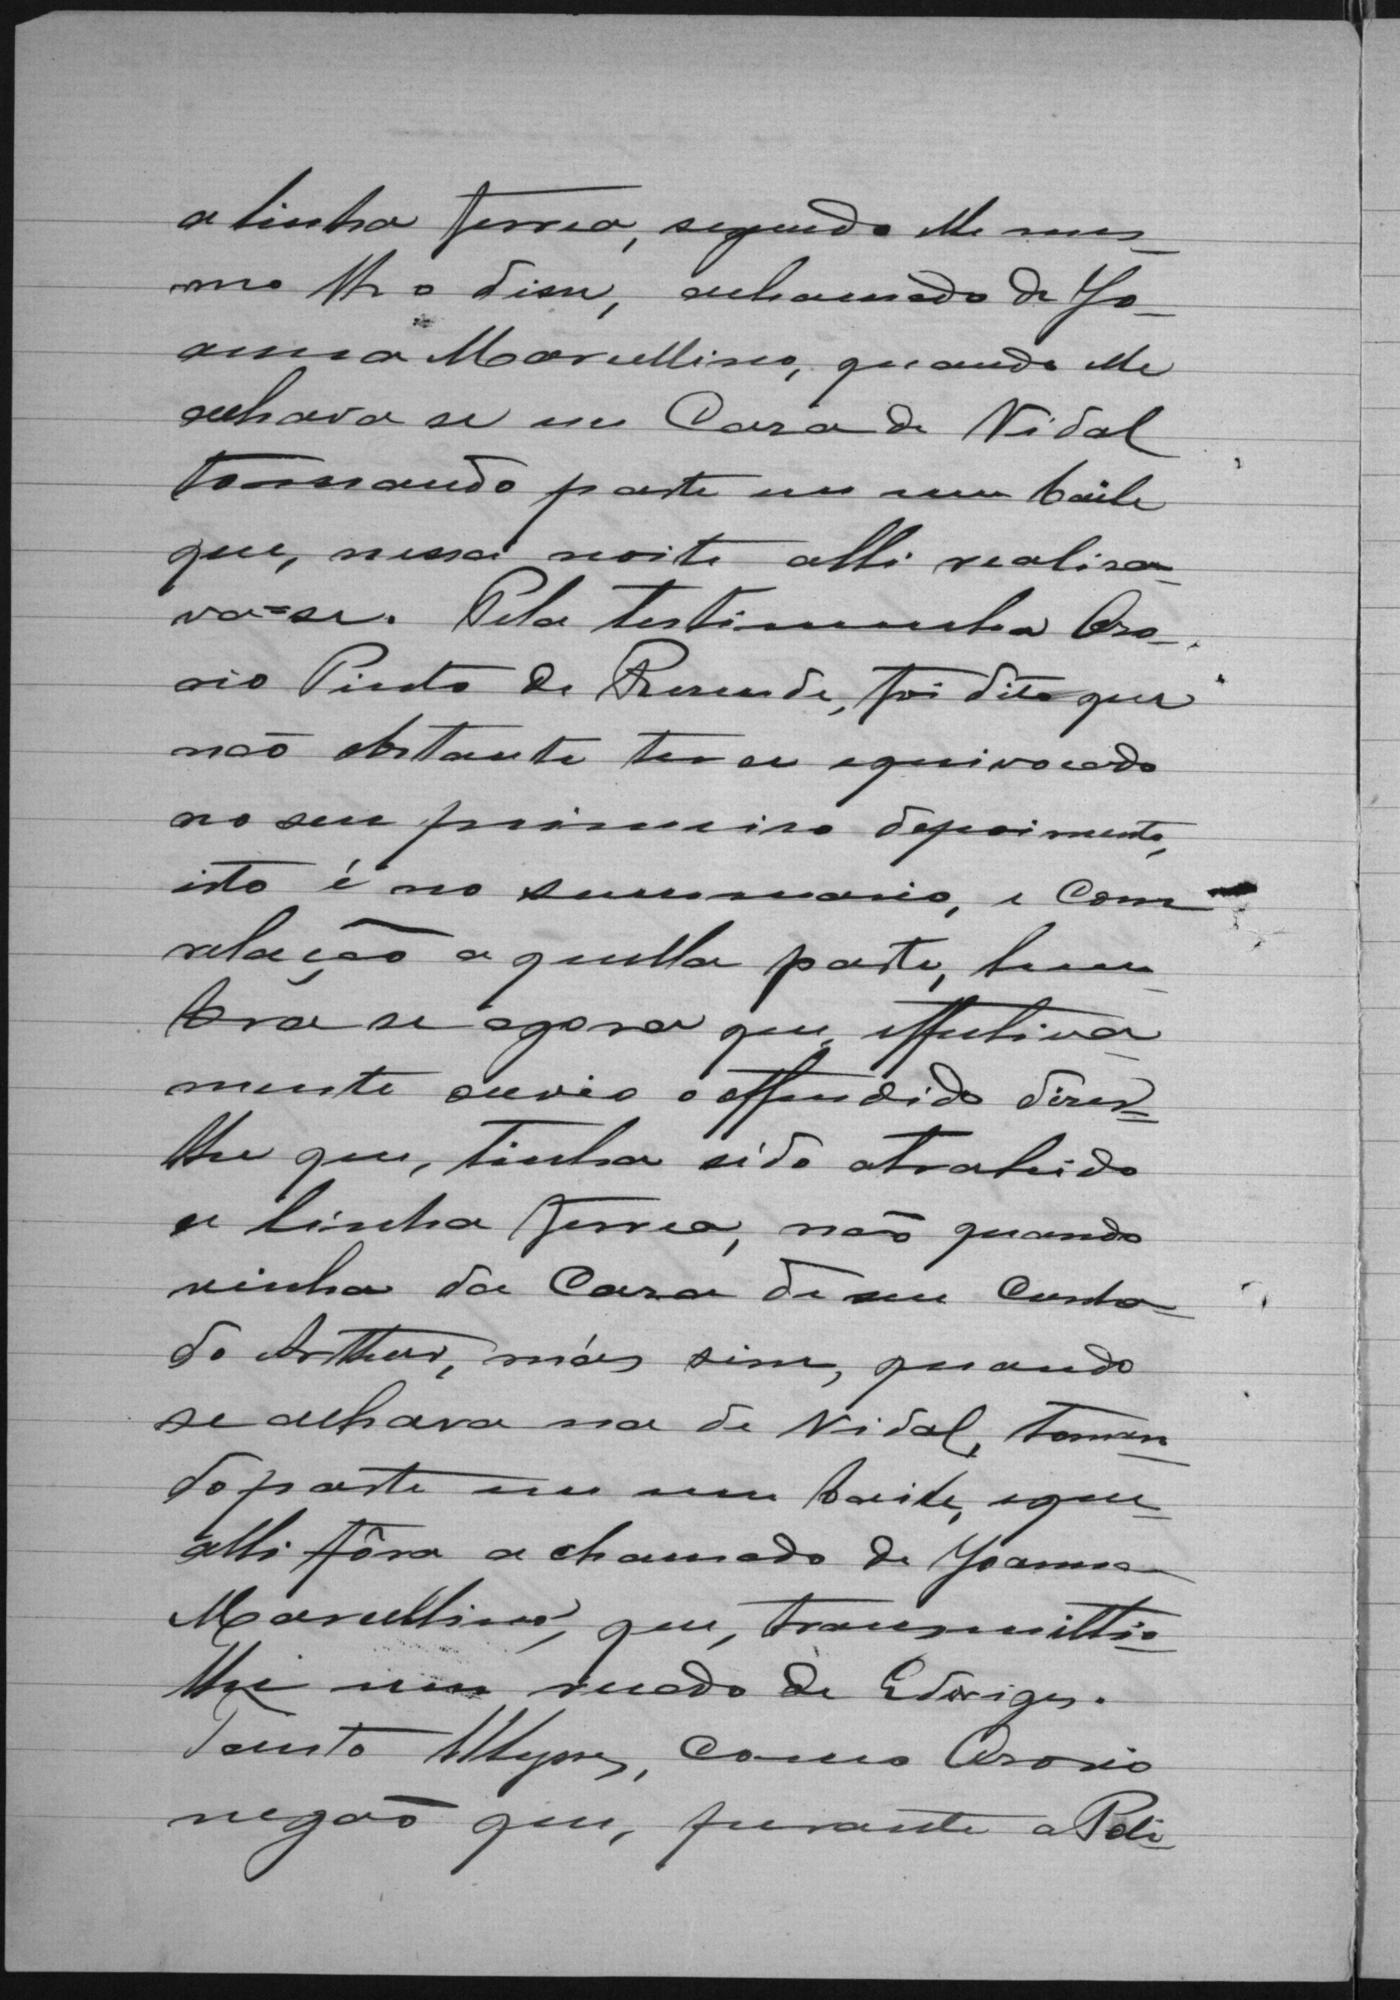 a linha ferrea, segundo elle mes-
mo lh'o disse, a chamado de Jo-
anna Marcellino, quando elle
achava se em Casa de Vidal
tomando parte em um baile
que, nessa noite alli realisa-
va=se. Pela testimunha Oso-
rio Pinto de Resende, foi dito que
não obstante ter se equivocado
no seu primeiro depoimento,
isto é no summario, e com
relação a quella parte, lem-
bra se agora que, effectiva-
mente ouvio o offendido dizer=
lhe que, tinha sido atrahido
a linha ferrea, não quando
vinha da Casa de seu Cunha-
do Arthur, más sim, quando
se achava na de Vidal, toman-
do parte em um baile, e que
alli fôra a chamado de Joanna
Marcellino, que, transmittio-
lhe um recado de Edwiges.
Tanto Ulysses, como Osorio
negão que, perante a Poli-